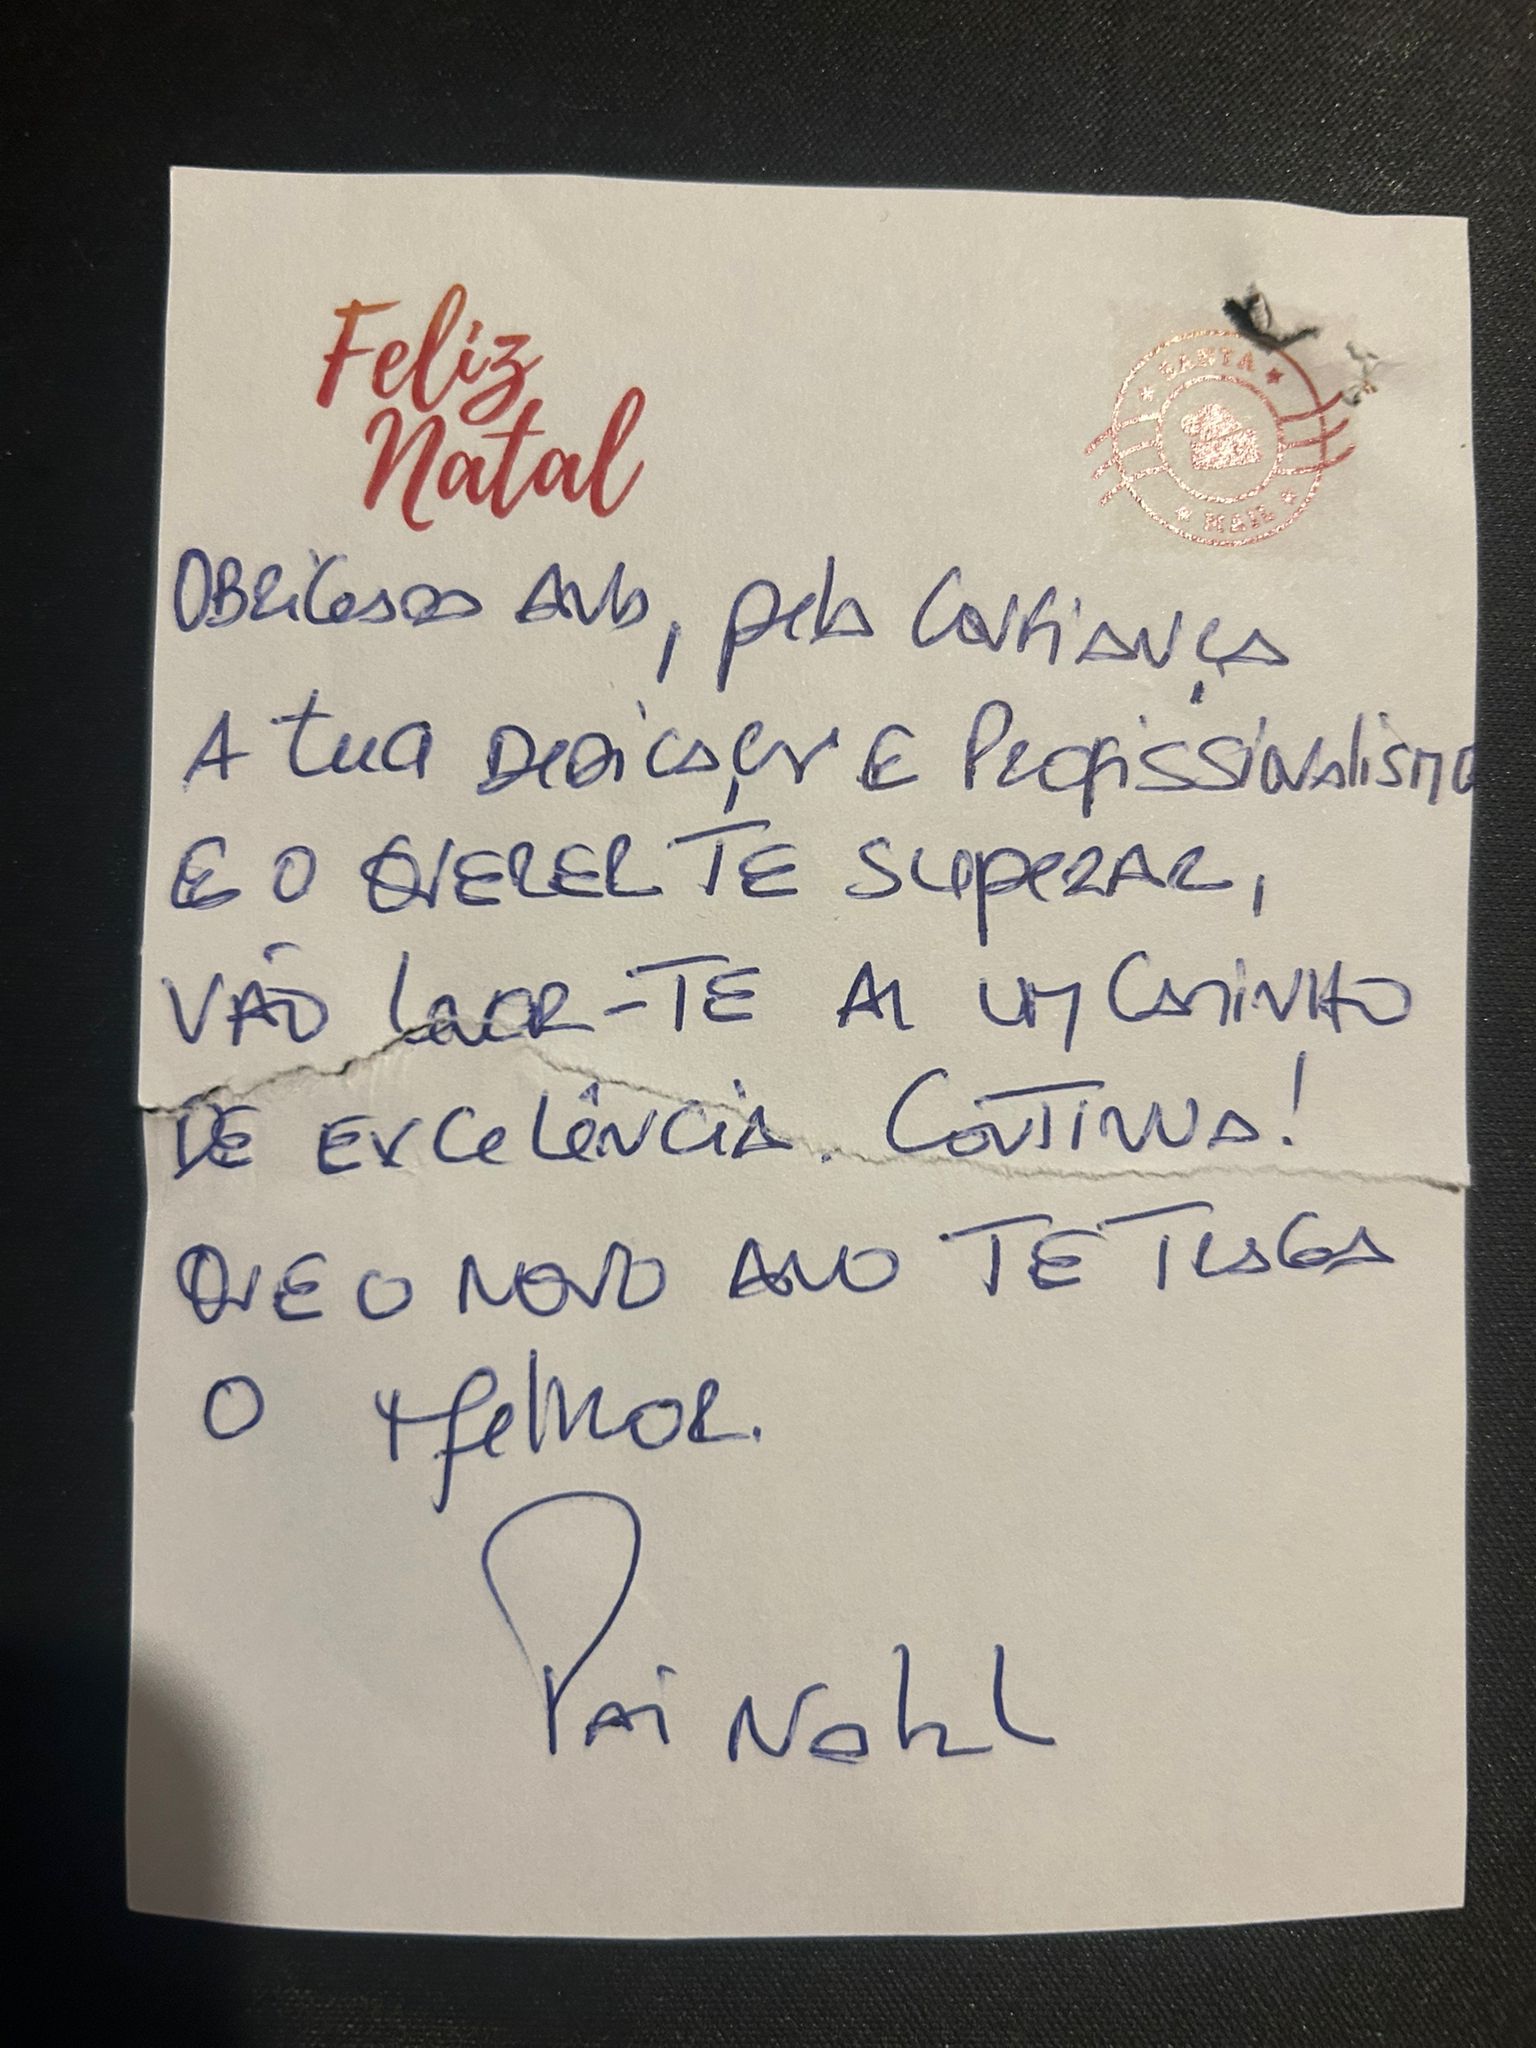 Feliz
Natal
SANTA
MAIL
OBRIGADA ANA, pela CONFIANÇA
A tua DEDICAÇÃO E Profissionalismo
E O QUERER TE SUPERAR,
VÃO levar-TE A UM CAMINHO
DE EXCELÊNCIA. CONTINUA!
QUE O NOVO ANO TE TRAGA
O Melhor.
Pai Natal